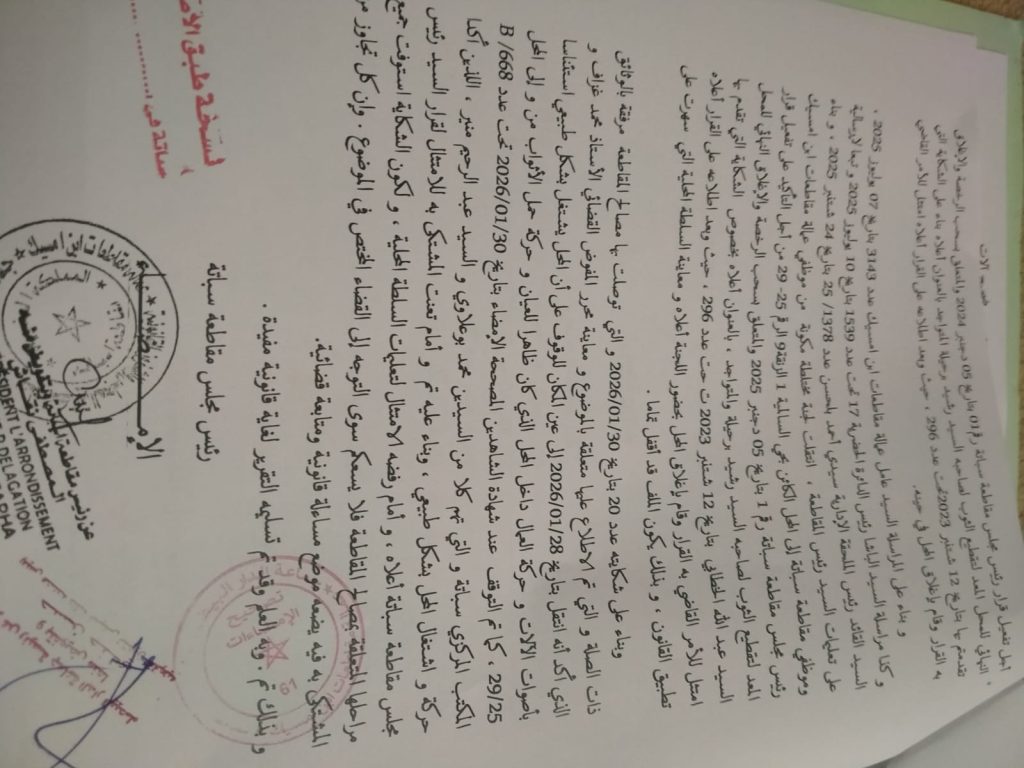 أجل تفعيل قرار رئيس مجلس مقاطعة سباتة رقم 01 بتاريخ 05 دجنبر 2024 والمتعلق بسحب الرخصة والاغلاق
النهائي للمحل المعد لتقطيع الثوب لصاحبه السيد رشيد رحيلة المتواجد بالعنوان أعلاه بناء على الشكاية التي
تقدم بها بتاريخ 12 شتنبر 2023 تحت عدد 296 ، حيث وبعد اطلاعه على القرار أعلاه امتثل للأمر القاضي
به القرار وقام بإغلاق المحل في حينه.
و بناء على المراسلة السيد عامل عمالة مقاطعات ابن امسيك عدد 3143 بتاريخ 07 يوليوز 2025 ،
و كذا مراسلة السيد الباشا رئيس الدائرة الحضرية 17 تحت عدد 1539 بتاريخ 10 يوليوز 2025 و تبعا لإرسالية
السيد القائد رئيس الملحقة الإدارية سيدي أحمد بلحسن عدد 25/1378 بتاريخ 24 شتنبر 2025 ، و بناء
على تعليمات السيد رئيس المقاطعة ، انتقلت لجنة مختلطة مكونة من موظفي عمالة مقاطعات ابن امسيك
وموظفي مقاطعة سباتة إلى المحل الكائن بحي السالمية 1 الزنقة 9 الرقم 25-29 من أجل التأكيد على تفعيل قرار
رئيس مجلس مقاطعة سباتة رقم 1 بتاريخ 05 دجنبر 2025 والمتعلق بسحب الرخصة والإغلاق النهائي للمحل
المعد لتقطيع الثوب لصاحبه السيد رشيد رحيلة والمتواجد ، بالعنوان أعلاه بخصوص الشكاية التي تقدم بها
السيد عبد الله الخطابي بتاريخ 12 شتنبر 2023 ت حت عدد 296 ، حيث وبعد اطلاعه على القرار أعلاه
امتثل للأمر القاضي به القرار وقام بإغلاق المحل بحضور اللجنة أعلاه و معاينة السلطة المحلية التي سهرت على
تطبيق القانون ، و بذلك يكون الملف قد أقفل تماما .
وبناء على شكايته عدد 20 بتاريخ 2026/01/30 و التي توصلت بها مصالح المقاطعة مرفقة بالوثائق
ذات الصلة و التي تم الاطلاع عليها متعلقة بالموضوع و معاينة محرر المفوض القضائي الأستاذ محمد غراف و
الذي أكد أنه انتقل بتاريخ 2026/01/28 إلى عين المكان للوقوف على أن المحل يشتغل بشكل طبيعي استئناسا
بأصوات الآلات و حركة العمال داخل المحل الذي كان ظاهرا للعيان و حركة حمل الأثواب من و إلى المحل
29/25 ، كما تم التوقف عند شهادة الشاهدين المصححة الإمضاء بتاريخ 2026/01/30 تحت عدد B /668
المكتب المركزي سباتة و التي تهم كلا من السيدين محمد بوعلاوي و السيد عبد الرحيم منير ، اللذين أكدا
حركة و اشتغال المحل بشكل طبيعي ، وبناء عليه تم و أمام تعنت المشتكى به للامتثال لقرار السيد رئيس
مجلس مقاطعة سباتة أعلاه ، و أمام رفضه الامتثال لتعليمات السلطة المحلية ، و لكون الشكاية استوفت جميع
مراحلها المتعلقة بمصالح المقاطعة فلا يسعكم سوى التوجه إلى القضاء المختص في الموضوع . وإن كل تجاوز من
المشتكى به فيه يضعه موضع مساءلة قانونية ومتابعة قضائية.
و بذلك تم ، وله العلم وقد تم تسليمه التقرير لغاية قانونية مفيدة .
رئيس مجلس مقاطعة سباتة
نسخة مطابق الأصل
سباتة في
عن رئيس مقاطعة سباتة وبتفويض منه
المصطفى
ARRONDISSEMENT
DELAGATION